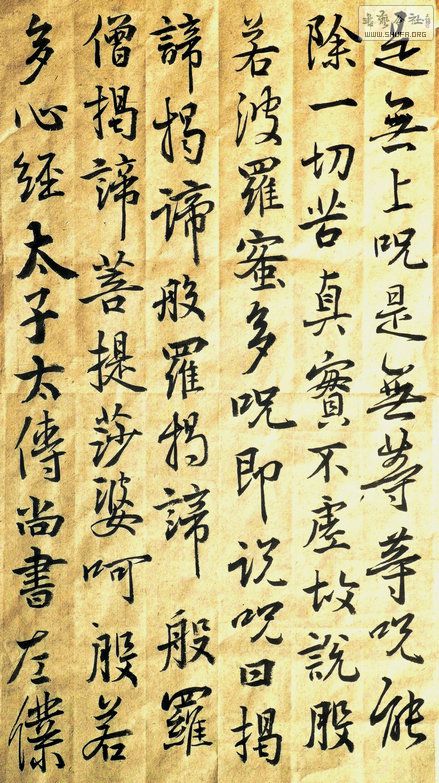 是無上呪是無等等呪能
除一切苦真實不虛故說般
若波羅蜜多呪即說呪曰揭
諦揭諦般羅揭諦 般羅
僧揭諦菩提莎婆呵般若
多心經太子太傅尚書左僕
WWW.SHUFA.ORG